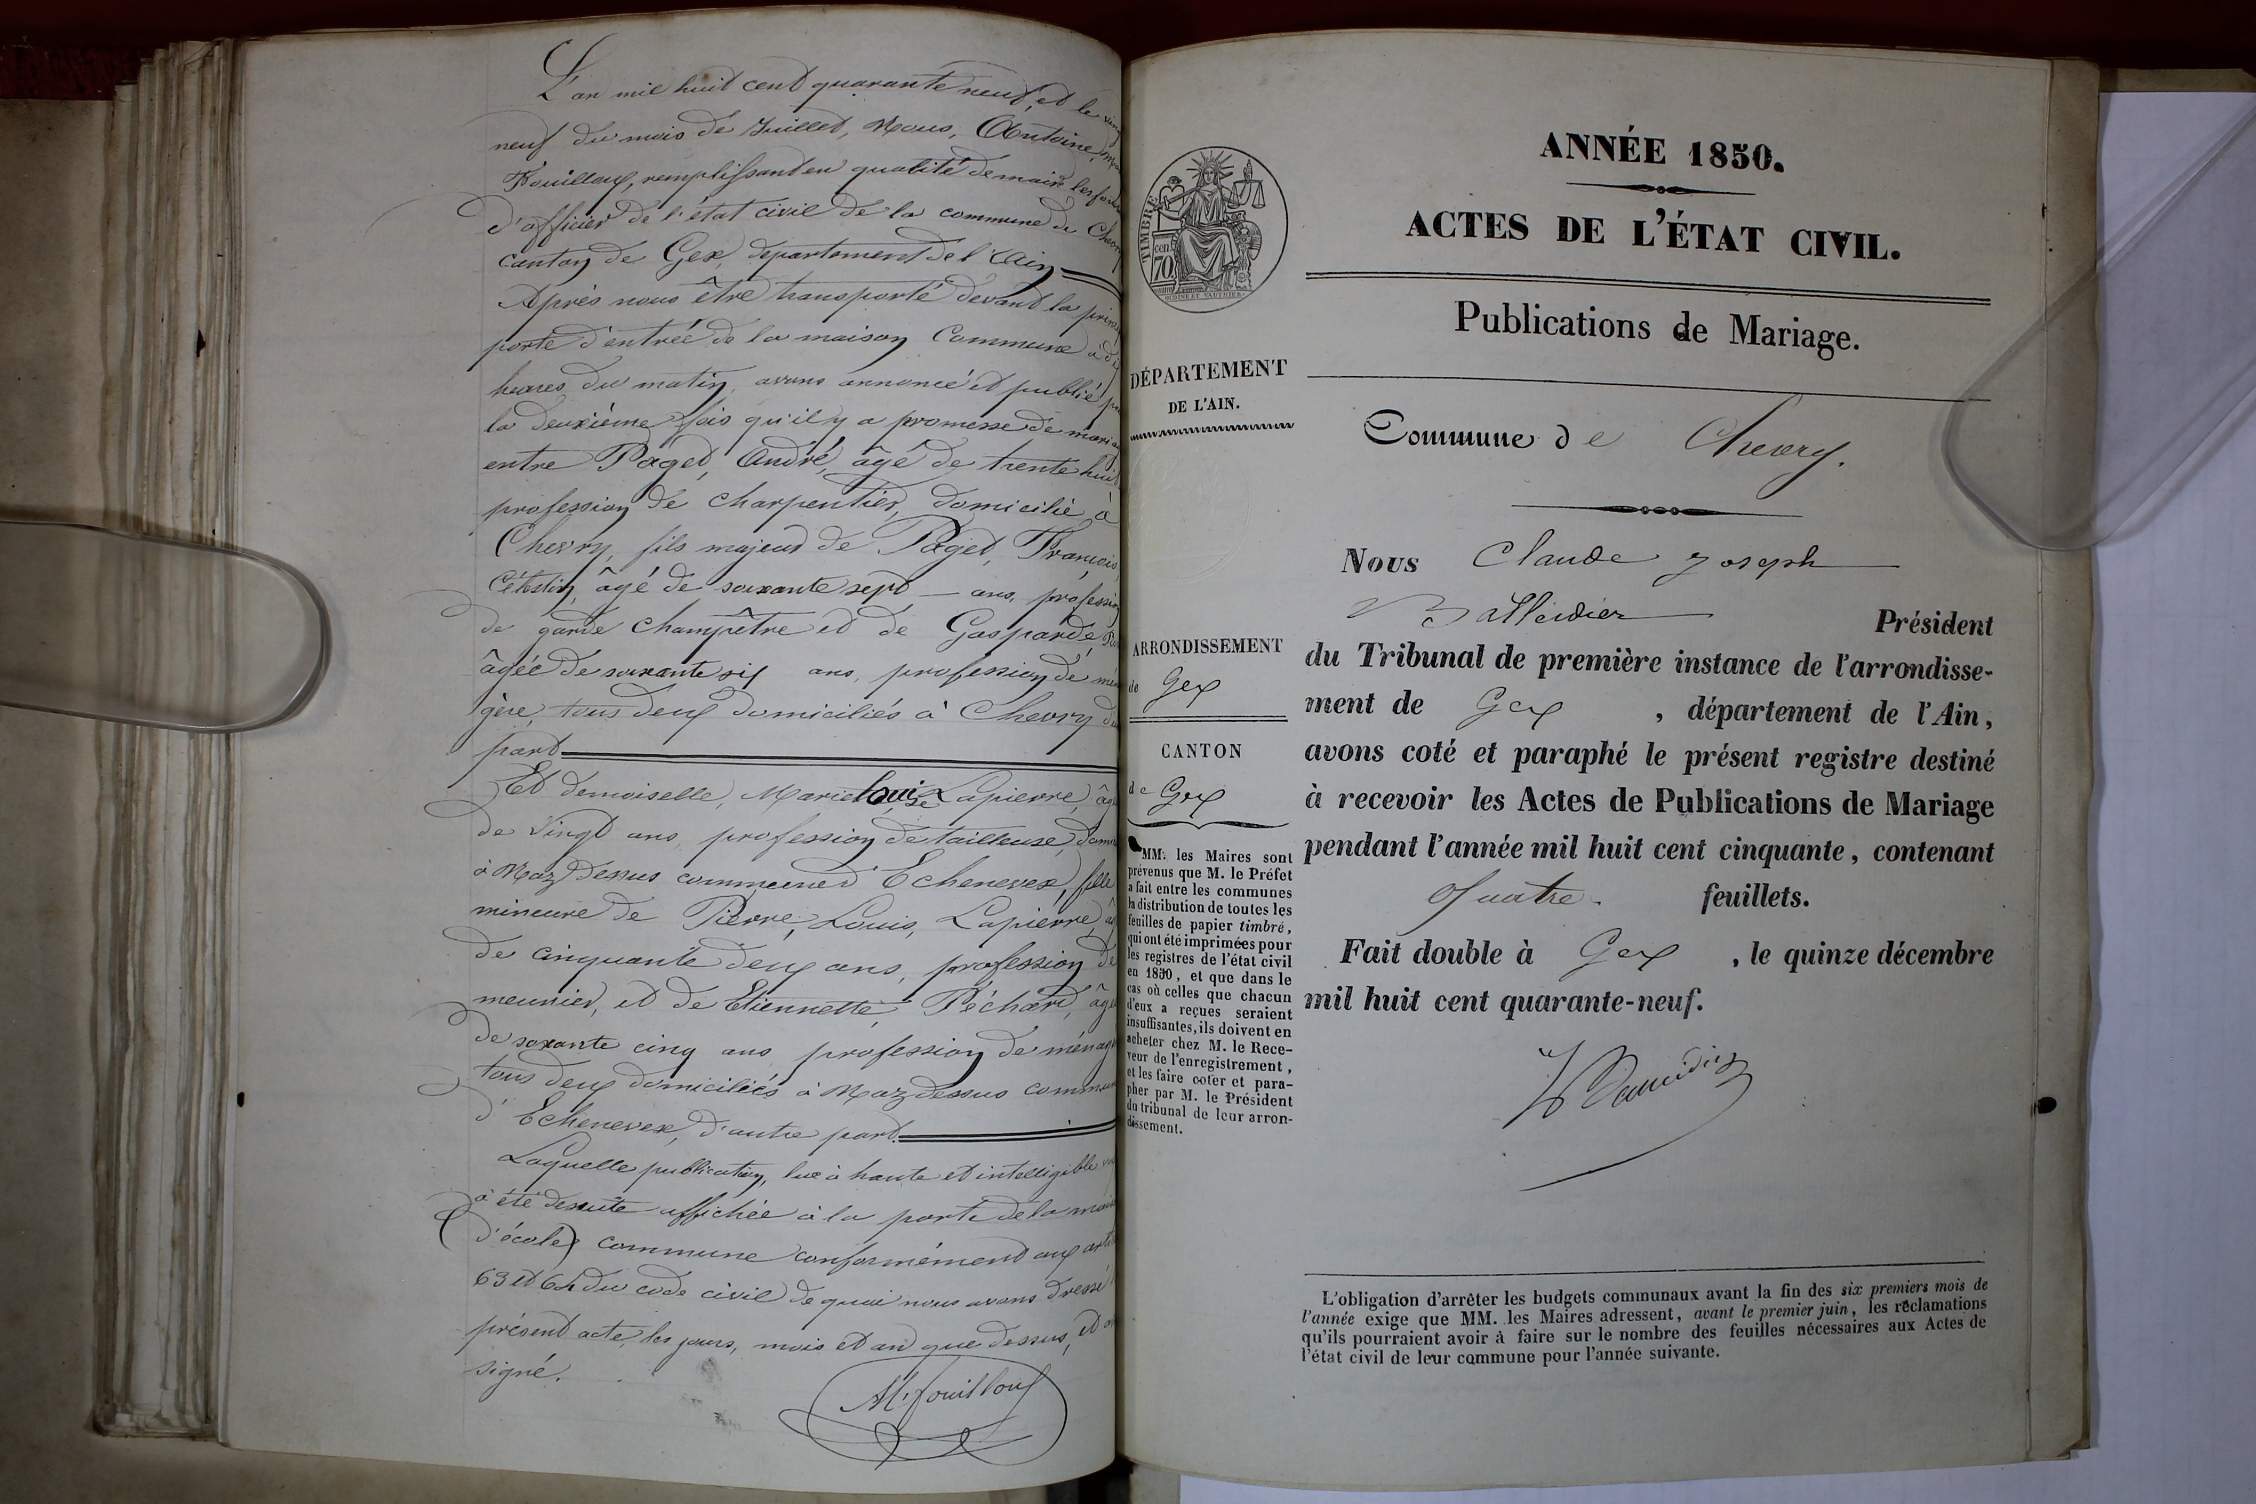 L'an mil huit cent quarante neuf, et le
neuf du mois de Juillet, Nous, Antoine,
Fouilloux, remplissant en qualité de maire les
d'officier de l'état civil de la commune de Chevry
canton de Gex, département de l'Ain
Après nous être transporté devant la
porte d'entrée de la maison Commune à
heures du matin, avons annoncé et publié
la deuxième fois qu'il y a promesse de
entre Paget, André, âgé de trente huit
profession de charpentier, domicilié à
Chevry, fils majeur de Paget, François,
Célestin, âgé de soixante sept ans, profession
de garde champêtre et de Gasparde,
âgée de soixante six ans, profession de
gère, tous deux domiciliés à Chevry
part
Et demoiselle, Marie Louise Lapierre,
de vingt ans, profession de tailleuse,
à Naz Dessus commune d'Echenevex, fille
mineure de Pierre, Louis, Lapierre,
de cinquante deux ans, profession de
meunier, et de Etiennette, Péchard,
de soxante cinq ans, profession de
tous deux domiciliés à Naz dessus
d'Echenevex, d'autre part.
Laquelle publication, lue à haute et intelligible
à été desuite affichée à la porte de la
d'école commune conformément aux
63 et 64 du code civil de quoi nous avons dressé
présent acte, les jours, mois et an que dessus, et
signé.
Fouilloux
ANNÉE 1850.
ACTES DE L'ÉTAT CIVIL.
Publications de Mariage.
TIMBRE
70 cen
OUDINÉ ET VAUTHIER
DÉPARTEMENT
DE L'AIN.
ARRONDISSEMENT
de Gex
CANTON
de Gex
MM. les Maires sont
prévenus que M. le Préfet
a fait entre les communes
la distribution de toutes les
feuilles de papier timbré,
qui ont été imprimées pour
les registres de l'état civil
en 1850, et que dans le
cas où celles que chacun
d'eux a reçues seraient
insuffisantes, ils doivent en
acheter chez M. le Rece-
veur de l'enregistrement,
et les faire coter et para-
pher par M. le Président
du tribunal de leur arron-
dissement.
Commune de Chevry.
Nous Claude Joseph
Président
du Tribunal de première instance de l'arrondisse-
ment de Gex, département de l'Ain,
avons coté et paraphé le présent registre destiné
à recevoir les Actes de Publications de Mariage
pendant l'année mil huit cent cinquante, contenant
Quatre feuillets.
Fait double à Gex, le quinze décembre
mil huit cent quarante-neuf.
L'obligation d'arrêter les budgets communaux avant la fin des six premiers mois de
l'année exige que MM. les Maires adressent, avant le premier juin, les réclamations
qu'ils pourraient avoir à faire sur le nombre des feuilles nécessaires aux Actes de
l'état civil de leur commune pour l'année suivante.